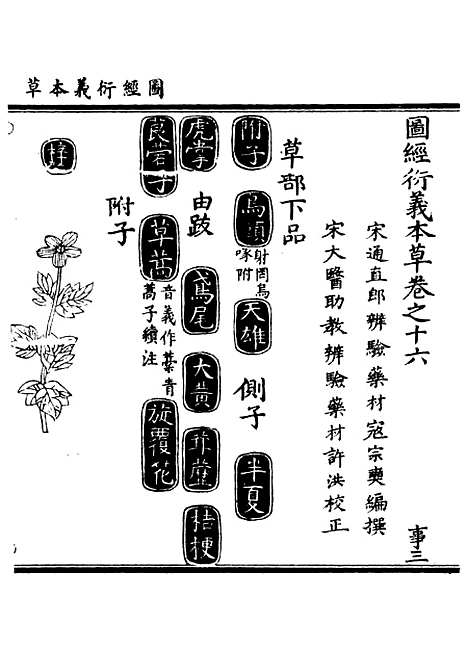 圖經衍義本草
圖經衍義本草卷之十六
事三
宋通直郎辨驗藥材寇宗奭編撰
宋太醫助教辨驗藥材許洪校正
草部下品
附子 烏頭 射罔烏喙附 天雄 側子 半夏
虎掌 由跋 鳶尾 大黃 葶藶 桔梗
莨菪子 草蒿 音義作藁青蒿子續注 旋覆花
附子
梓